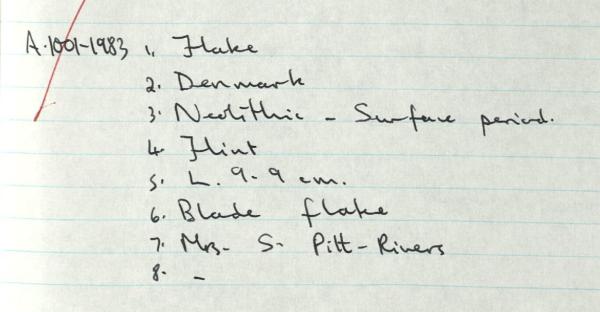 A.1001-1983 1. Flake
2. Denmark
3. Neolithic - Surface period.
4. Flint
5. L. 9.9 cm.
6. Blade flake
7. Mrs. S. Pitt-Rivers
8. -